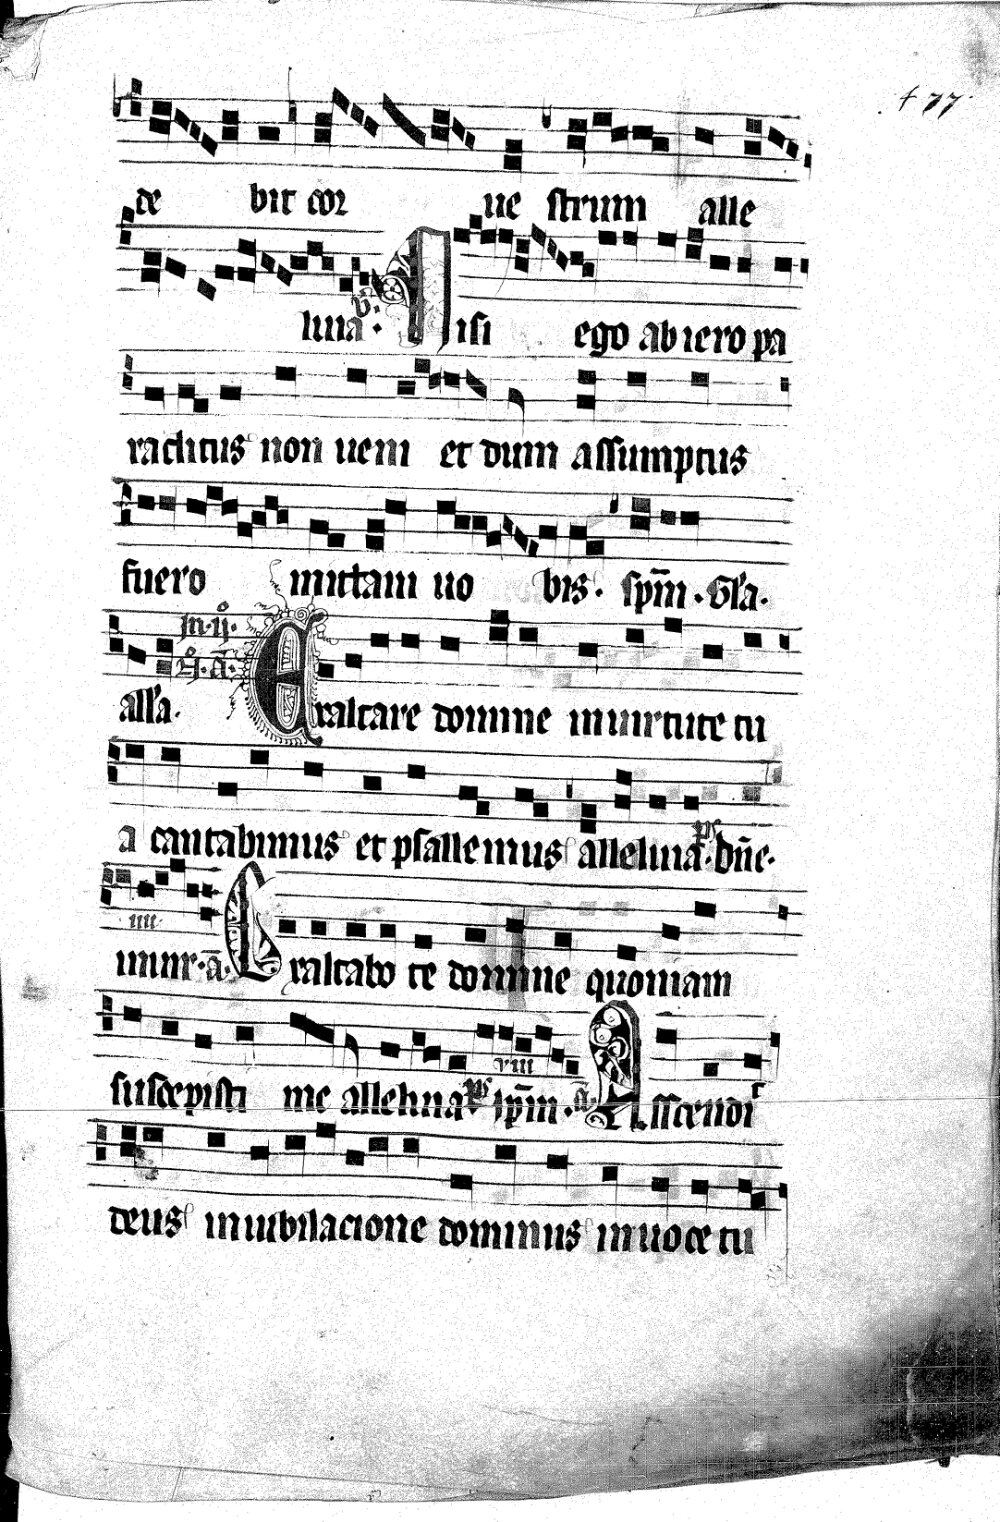 +77.
de bit cor ue strum alle
luia. v̄. Nisi ego abiero pa
raclitus non ueni et dum assumptus
fuero mittam uo bis. sp̄m. Gl̄a.
In.ij.
N̊.ā.
all̄a. Exaltare domine in uirtute tu
a cantabimus et psallemus alleluia. ps dn̄e.
iiii
in uir. ā. Exaltabo te domine quoniam
viii
suscepisti me alleluia ps sp̄m. ā. Ascendit
deus in iubilacione dominus in uoce tu